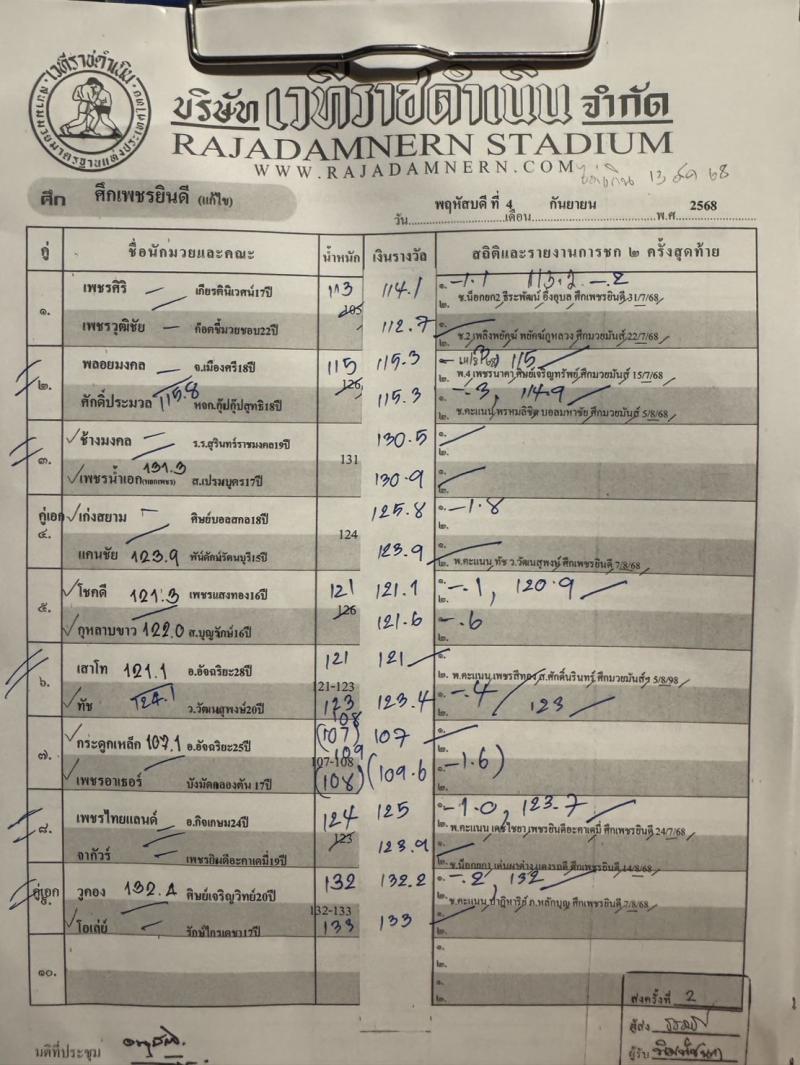 เวทีราชดำเนิน
บริษัท เวทีราชดำเนิน จำกัด
RAJADAMNERN STADIUM
WWW.RAJADAMNERN.COM
13 สค 68
ศึก ศึกเพชรยินดี (แก้ไข)
วัน พฤหัสบดี ที่ 4 เดือน กันยายน พ.ศ 2568
คู่ ชื่อนักมวยและคณะ น้ำหนัก เงินรางวัล สถิติและรายงานการชก ๒ ครั้งสุดท้าย
๑. เพชรศิริ เกียรตินิเวศน์17ปี 113 114.1 ๑. -1.1 113.2 -.2
105 ๒. ช.น็อกยก2 ธีระพัฒน์ อึ้งอุบล ศึกเพชรยินดี 31/7/68
เพชรวุฒิชัย ก๊อตซี้มวยชอบ22ปี 112.7 ๑.
๒. ช.2 เพลิงพยัคฆ์ พยัคฆ์ภูหลวง ศึกมวยมันส์ 22/7/68
๒. พลอยมงคล จ.เมืองศรี18ปี 115 115.3 115
126 พ.4 เพชรนาคา ศิษย์เจริญทรัพย์ ศึกมวยมันส์ 15/7/68
ศักดิ์ประมวล 115.8 หจก.กุ๊ปกุ๊ปสุทธิ18ปี 115.3 ๑. -.3 114.9
๒. ช.คะแนน พรหมลิขิต บอลมหาชัย ศึกมวยมันส์ 5/8/68
๓. ช้างมงคล ร.ร.สุรินทร์ราชมงคล19ปี 130.5 ๑.
131 ๒.
เพชรน้ำเอก 131.3 ส.เปรมบุตร17ปี 130.9 ๑.
๒.
คู่เอก ๔. เก่งสยาม ศิษย์บอลสกล18ปี 125.8 ๑. -1.8
124 ๒.
แคนชัย 123.9 พันธ์ศักดิ์รัตนบุรี15ปี 123.9 ๑.
๒. พ.คะแนน ทัช ว.วัฒนสุพงษ์ ศึกเพชรยินดี 7/8/68
๕. โชกดี 121.3 เพชรแสงทอง16ปี 121 121.1 ๑. -.1, 120.9
126 ๒.
กุหลาบขาว 122.0 ส.บุญรักษ์16ปี 121.6 ๑. -.6
๒.
๖. เสาโท 121.1 อ.อัจฉริยะ28ปี 121 121
121-123 ๒. พ.คะแนน เพชรสีทอง ส.ศักดิ์นรินทร์ ศึกมวยมันส์ฯ 5/8/98
ทัช 124.1 ว.วัฒนสุพงษ์20ปี 123 123.4 ๑. -.4
๒. 123
๗. กระดูกเหล็ก 107.1 อ.อัจฉริยะ25ปี 108 (107) 107 ๑.
107-108 109 ๒.
เพชรอาเธอร์ บังมัดคลองตัน 17ปี (108) (109.6 ๑. -1.6)
๒.
๘. เพชรไทยแลนด์ อ.กิจเกษม24ปี 124 125 ๑. -1.0, 123.7
123 พ.คะแนน เคซี ไชยา เพชรยินดีอะคาเดมี่ ศึกเพชรยินดี 24/7/68
จากัวร์ เพชรยินดีอะคาเดมี่19ปี 123.9 ๑.
๒. ช.น็อกยก1 เด่นผาด่าง แดงรถดี ศึกเพชรยินดี 14/8/68
คู่เอก วูคอง 132.2 ศิษย์เจริญวิทย์20ปี 132 132.2 ๑. -.2, 132
132-133 ช.คะแนน ปาฏิหาริย์ ภ.หลักบุญ ศึกเพชรยินดี 7/8/68
โอเล่ย์ รักษ์ไกรเดชา17ปี 133 133 ๑.
๒.
๑๐. ๑.
๒.
๑.
๒.
ส่งครั้งที่ 2
ผู้ส่ง
มติที่ประชุม อนุมัติ
ผู้รับ